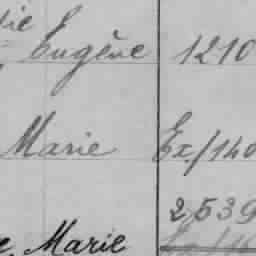 Eugène 1210
Marie Ex/140
2539
Marie